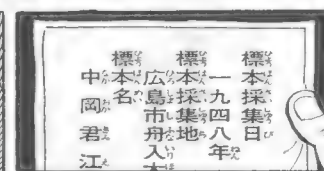 標本採集日
一九四八年
標本採集地
広島市舟入本
標本名
中岡君江